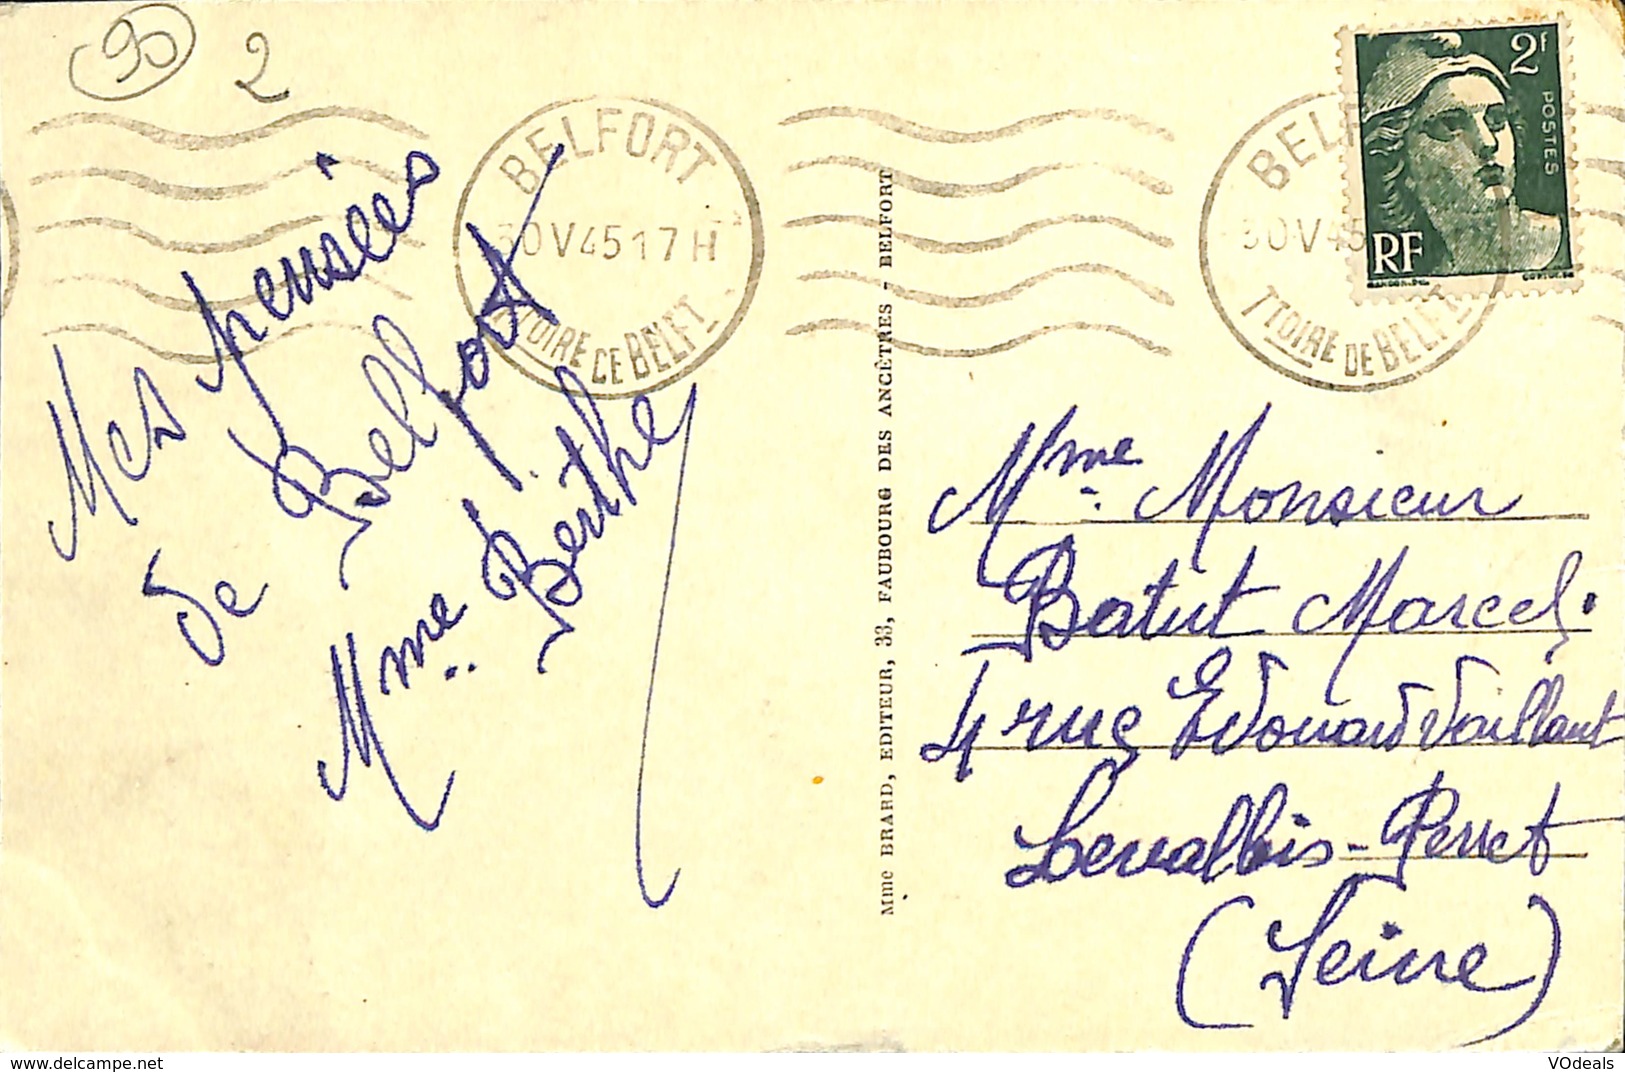 90
2
BELFORT
30 V 45 17 H
TTOIRE DE BELFT
BELF
30 V 45
TTOIRE DE BELFT
2F
POSTES
RF
GANDON.DEL.
Mes pensées
de Belfort
Mme. Berthe
Mme BRARD, EDITEUR, 33, FAUBOURG DES ANCÊTRES - BELFORT
Mme. Monsieur
Batut Marcel.
4 rue Edouard Vaillant
Levallois-Perret
(Seine)
VOdeals